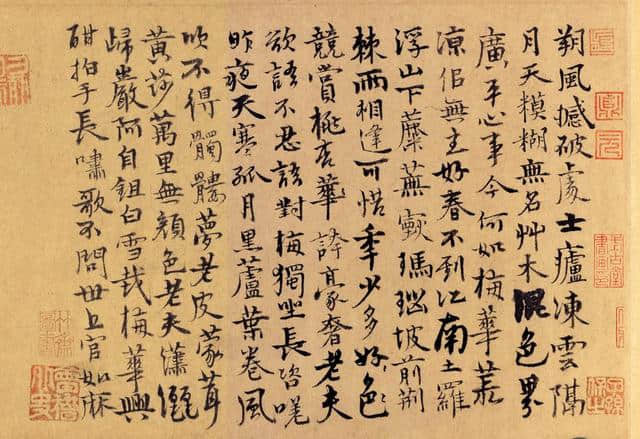 朔風撼破處士廬凍雲隔
月天模糊無名艸木混色界
廣平心事今何如梅華荒
涼佀無主好春不到江南土羅
浮山下蘼蕪瑪瑙坡前荊
棘雨相逢可惜季少多好色
競賞桃杏華誇豪奢老夫
欲語不忍語對梅獨坐長咨嗟
昨夜天寒孤月黑蘆葉卷風
吹不得髑髏夢老皮蒙茸
黃莎萬里無顏色老夫瀟灑
歸巖阿自鉏白雪栽梅華興
酣拍手長嘯歌不問世上官如麻